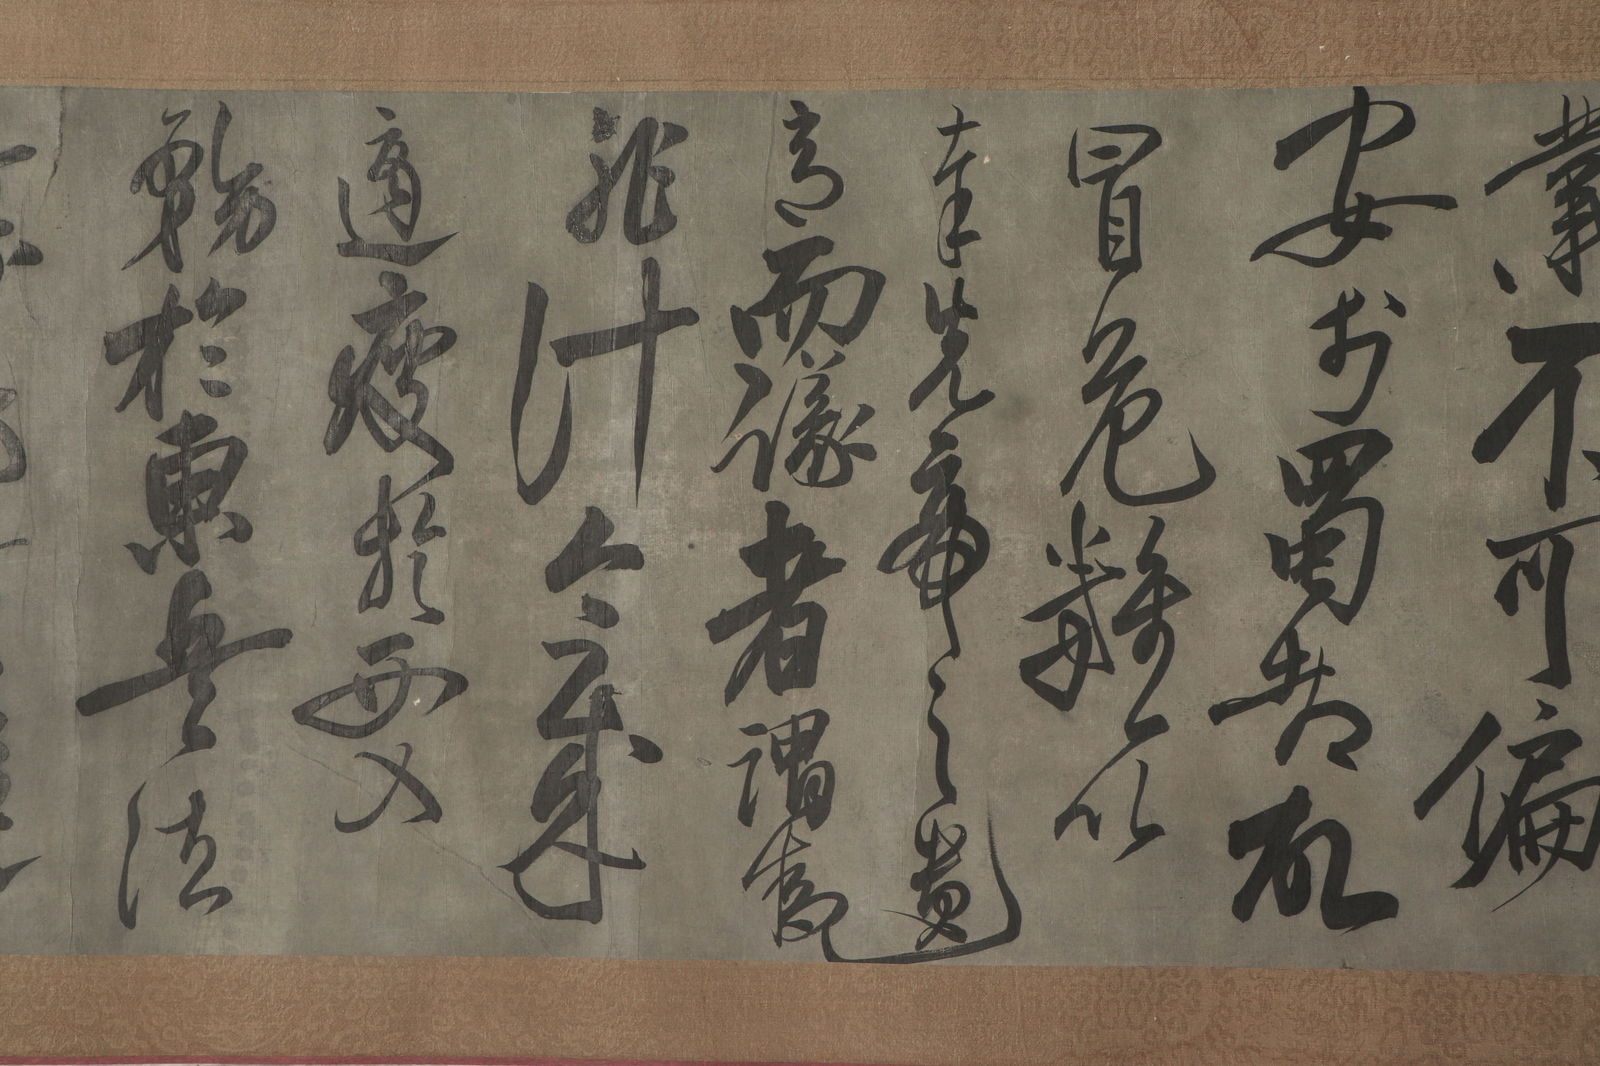 業不可偏
安於蜀都故
冒危難以
奉先帝之遺
意而議者謂為
非計今賊
適疲於西又
務於東兵法